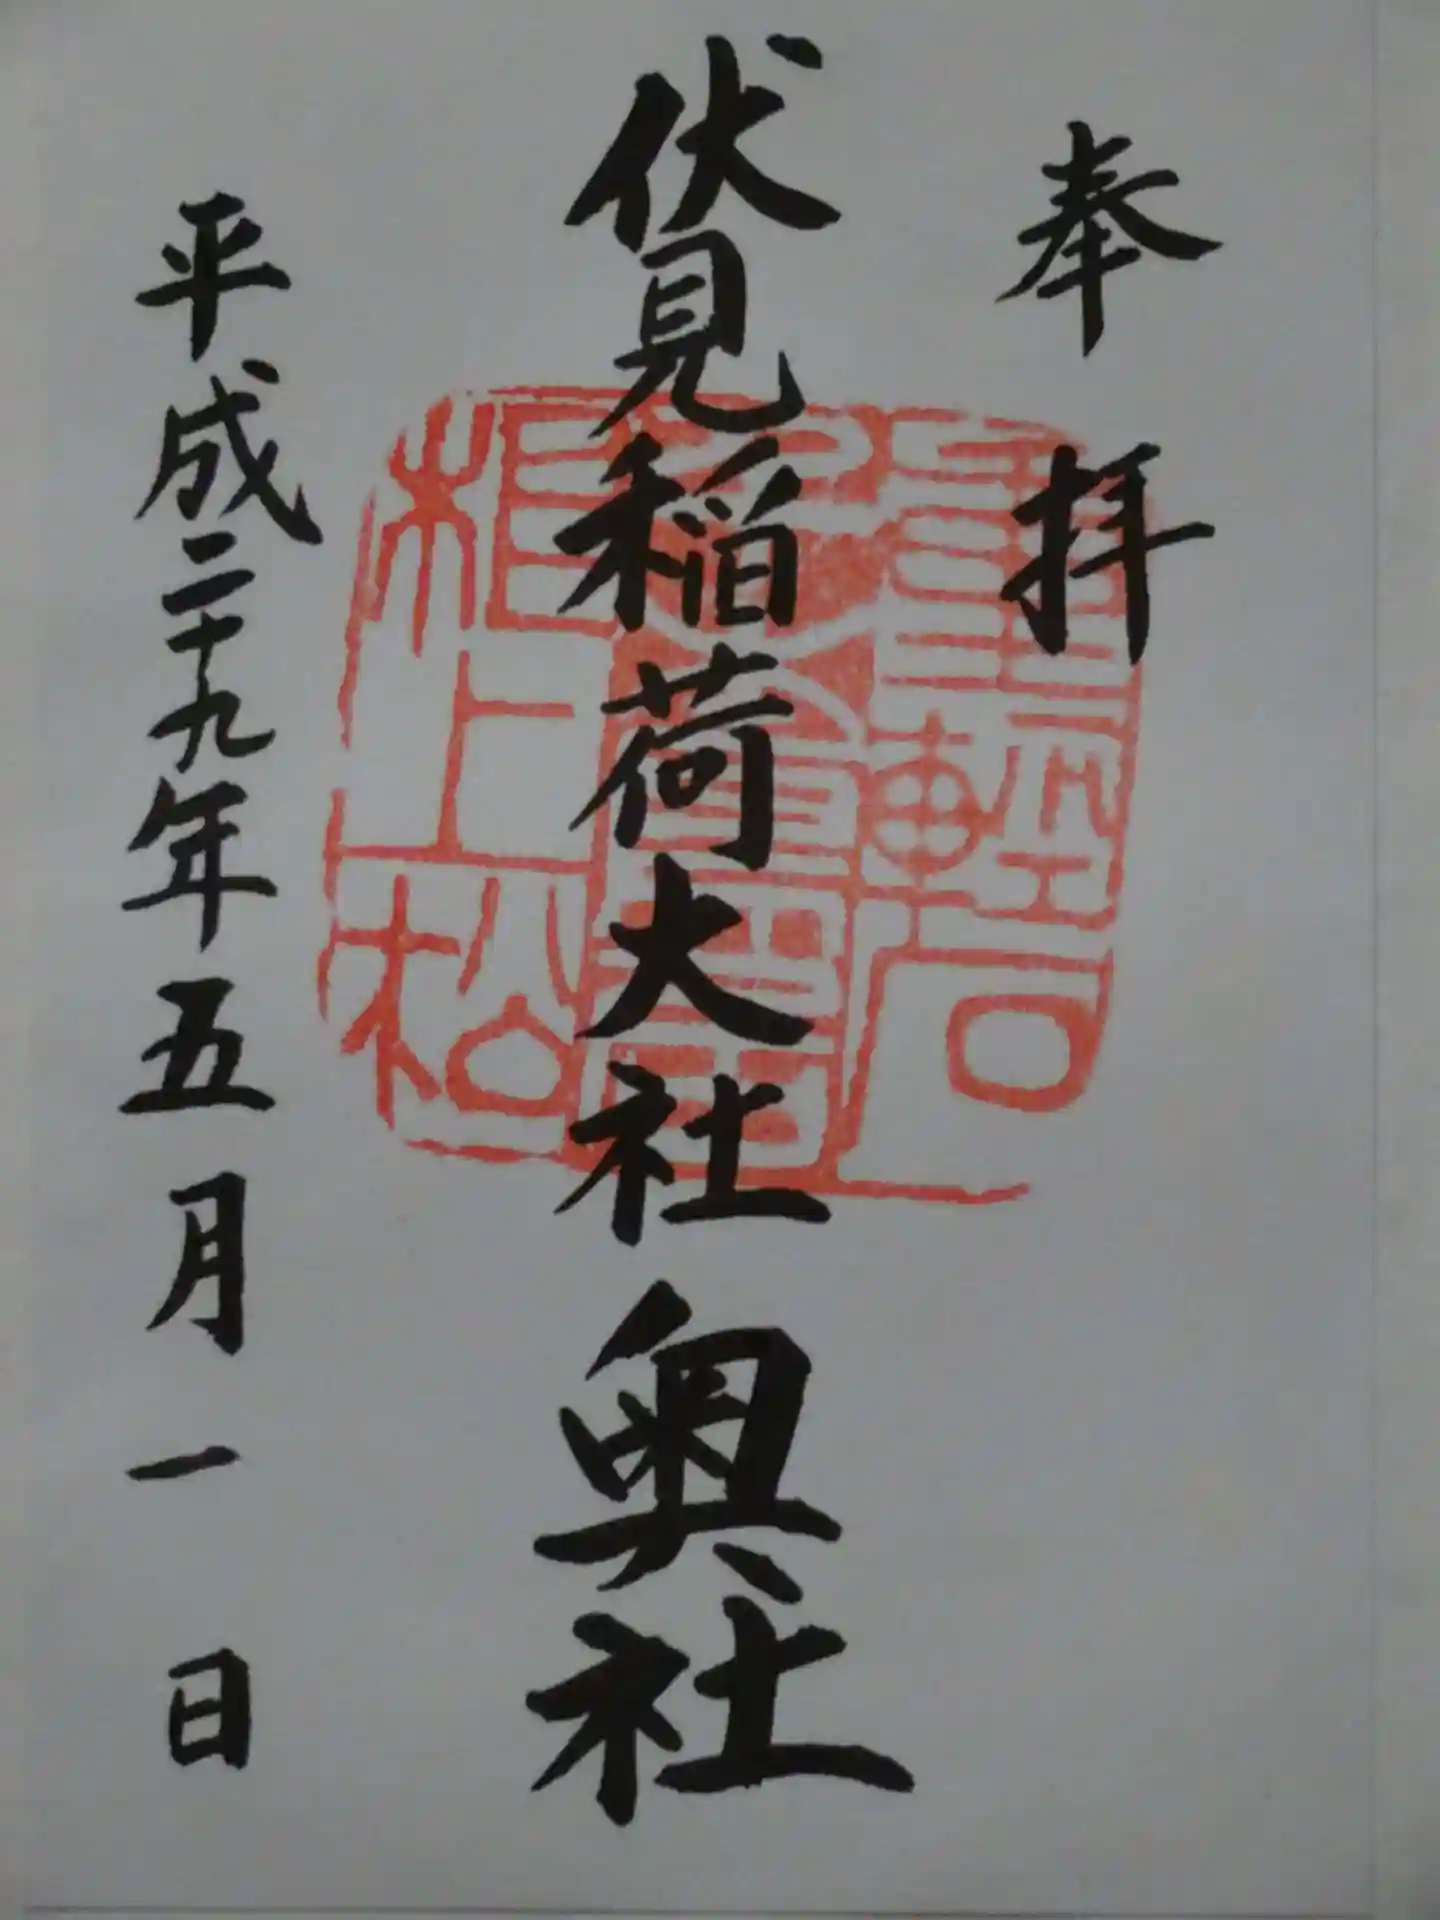 奉拝
伏見稲荷大社奥社
平成二十九年五月一日